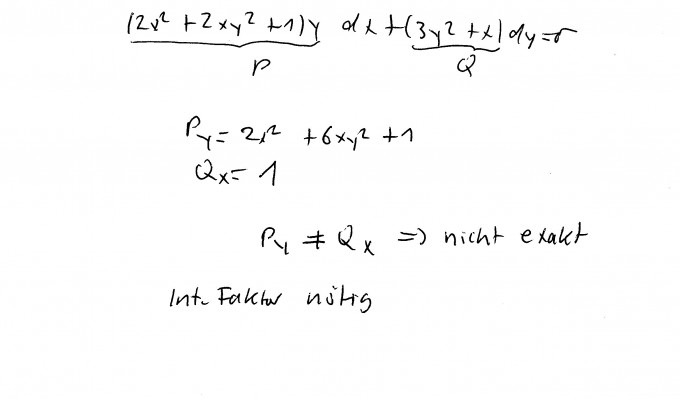 (2x² + 2xy² + 1)y dx + (3y² + x) dy = 0
P Q
Py = 2x² + 6xy² + 1
Qx = 1
Py ≠ Qx => nicht exakt
Int. Faktor nötig